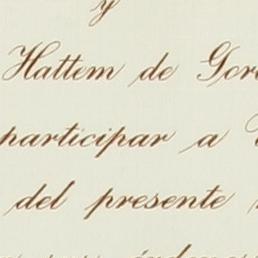 y
Hattem de
participar a
del presente